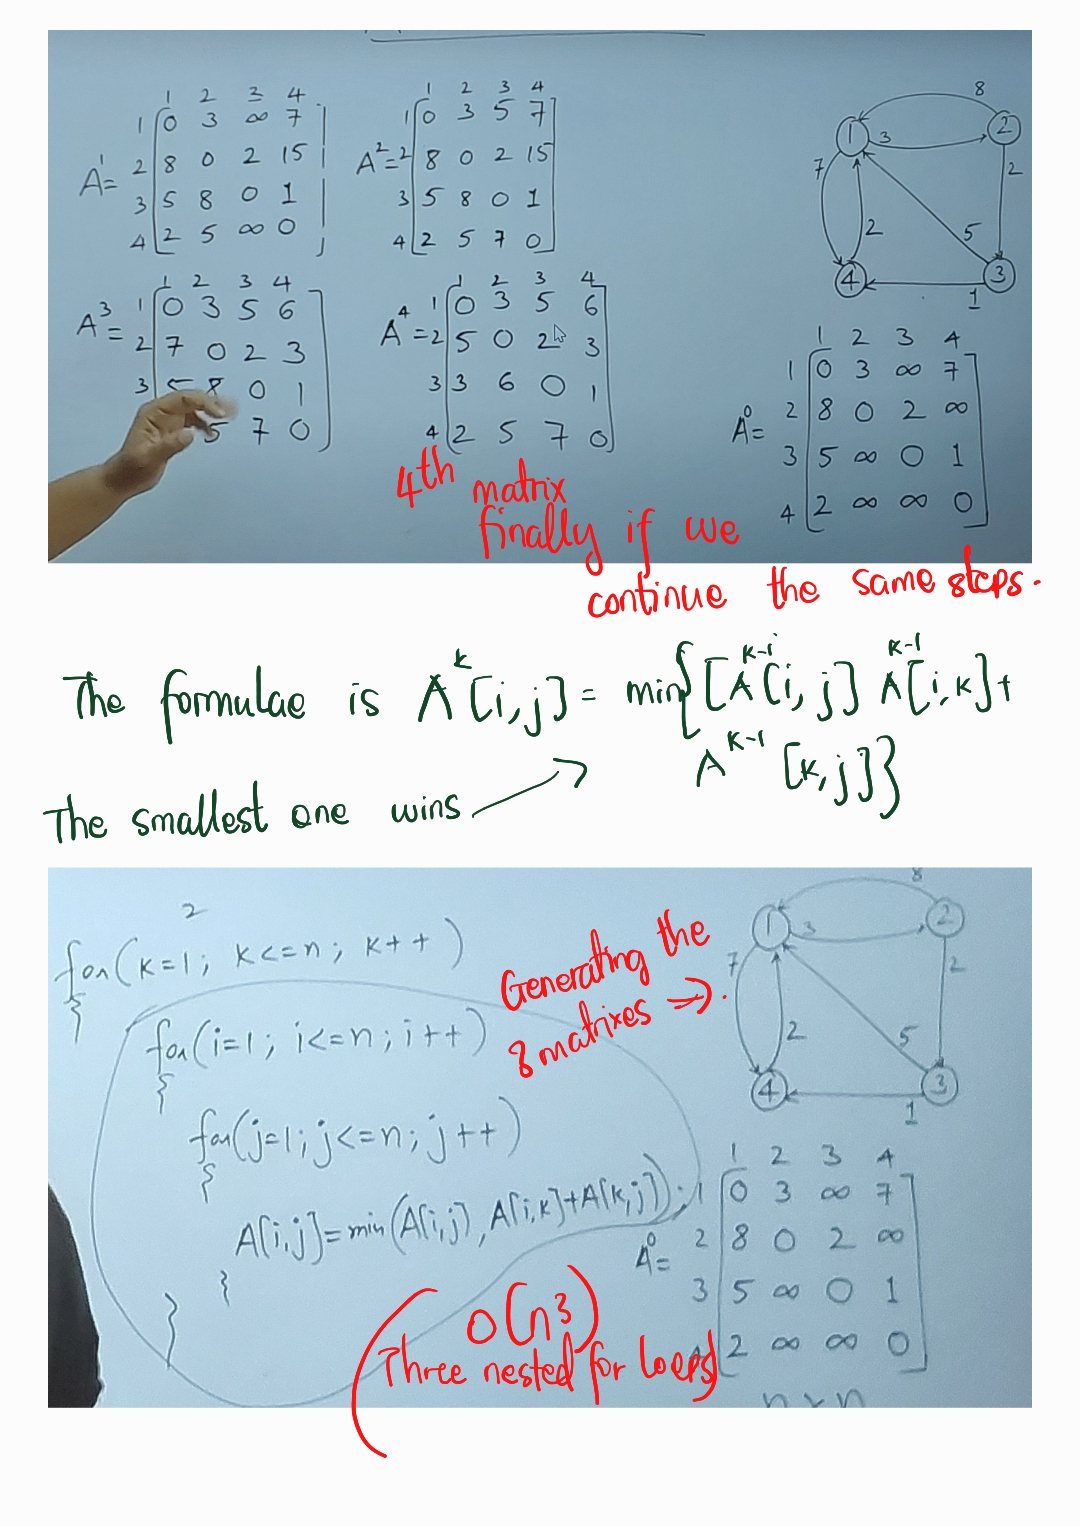 1 2 3 4
1 0 3 ∞ 7
2 8 0 2 15
A¹=
3 5 8 0 1
4 2 5 ∞ 0
1 2 3 4
1 0 3 5 7
A²= 2 8 0 2 15
3 5 8 0 1
4 2 5 7 0
8
1 3 2
7 2
2 5
4 3
1
1 2 3 4
A³= 1 0 3 5 6
2 7 0 2 3
3 5 8 0 1
5 7 0
1 2 3 4
1 0 3 5 6
A⁴= 2 5 0 2 3
3 3 6 0 1
4 2 5 7 0
1 2 3 4
1 0 3 ∞ 7
2 8 0 2 ∞
A⁰=
3 5 ∞ 0 1
4 2 ∞ ∞ 0
4th matrix
finally if we
continue the same steps.
The formulae is Aᵏ[i,j] = min{[Aᵏ⁻¹[i,j] Aᵏ⁻¹[i,k]+
Aᵏ⁻¹[k,j]}
The smallest one wins →
2
for(k=1; k<=n; k++)
{
for(i=1; i<=n; i++)
{
for(j=1; j<=n; j++)
{
A[i,j]=min(A[i,j], A[i,k]+A[k,j]);
}
}
Generating the
8 matrixes →.
8
1 3 2
7 2
2 5
4 3
1
1 2 3 4
1 0 3 ∞ 7
A⁰= 2 8 0 2 ∞
3 5 ∞ 0 1
2 ∞ ∞ 0
n×n
O(n³)
(Three nested for loops)